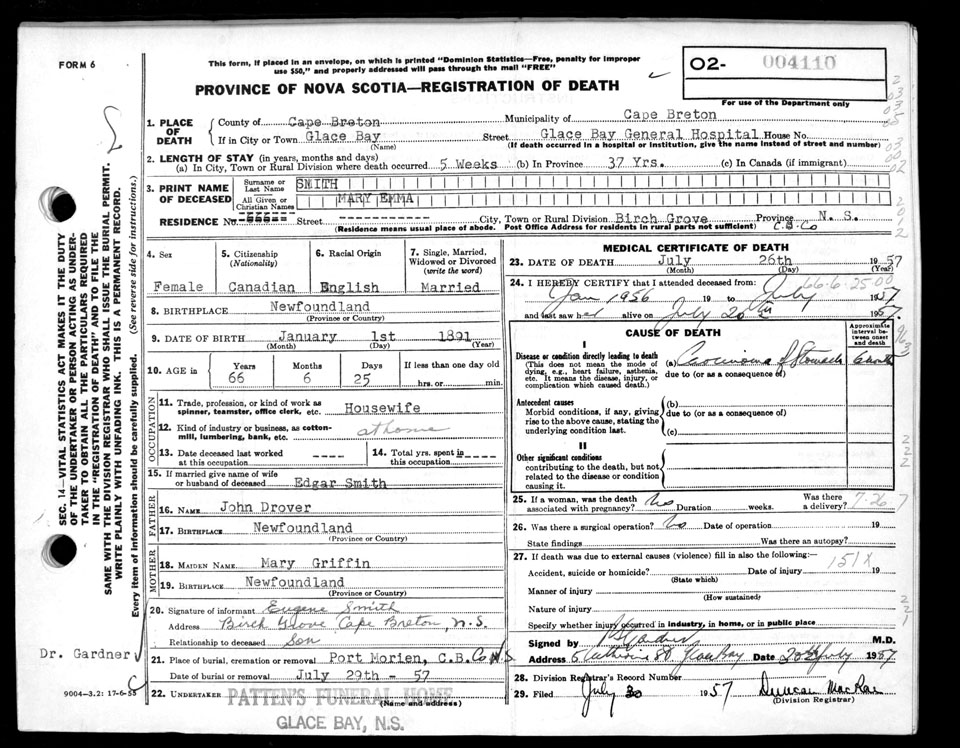 FORM 6
This form, if placed in an envelope, on which is printed "Dominion Statistics—Free, penalty for improper
use $50," and properly addressed will pass through the mail "FREE"
PROVINCE OF NOVA SCOTIA—REGISTRATION OF DEATH
O2- 004110
For use of the Department only
SEC. 14—VITAL STATISTICS ACT MAKES IT THE DUTY
OF THE UNDERTAKER OR PERSON ACTING AS UNDER-
TAKER TO OBTAIN ALL THE PARTICULARS REQUIRED
IN THE "REGISTRATION OF DEATH" AND TO FILE THE
SAME WITH THE DIVISION REGISTRAR WHO SHALL ISSUE THE BURIAL PERMIT.
WRITE PLAINLY WITH UNFADING INK. THIS IS A PERMANENT RECORD.
Every item of information should be carefully supplied. (See reverse side for instructions.)
1. PLACE OF DEATH
County of Cape Breton Municipality of Cape Breton
If in City or Town Glace Bay Street Glace Bay General Hospital House No.
(Name) (If death occurred in a hospital or institution, give the name instead of street and number)
2. LENGTH OF STAY (in years, months and days)
(a) In City, Town or Rural Division where death occurred 5 Weeks (b) In Province 37 Yrs. (c) In Canada (if immigrant)
3. PRINT NAME OF DECEASED
Surname or Last Name SMITH
All Given or Christian Names MARY EMMA
RESIDENCE No. Street City, Town or Rural Division Birch Grove Province N. S.
(Residence means usual place of abode. Post Office Address for residents in rural parts not sufficient) C.B. Co
4. Sex
Female
5. Citizenship
(Nationality)
Canadian
6. Racial Origin
English
7. Single, Married,
Widowed or Divorced
(write the word)
Married
8. BIRTHPLACE Newfoundland
(Province or Country)
9. DATE OF BIRTH January 1st 1891
(Month) (Day) (Year)
10. AGE in Years Months Days If less than one day old
66 6 25 hrs. or min.
OCCUPATION
11. Trade, profession or kind of work as
spinner, teamster, office clerk, etc. Housewife
12. Kind of industry or business, as cotton-
mill, lumbering, bank, etc. at home
13. Date deceased last worked
at this occupation ----
14. Total yrs. spent in
this occupation -----
15. If married give name of wife
or husband of deceased Edgar Smith
FATHER
16. NAME John Drover
17. BIRTHPLACE Newfoundland
(Province or Country)
MOTHER
18. MAIDEN NAME Mary Griffin
19. BIRTHPLACE Newfoundland
(Province or Country)
20. Signature of informant Eugene Smith
Address Birch Grove Cape Breton, N.S.
Relationship to deceased Son
Dr. Gardner
21. Place of burial, cremation or removal Port Morien, C.B. Co N.S.
Date of burial or removal July 29th - 57
9004-3.2: 17-6-55
22. UNDERTAKER PATTEN'S FUNERAL HOME
(Name and address)
GLACE BAY, N.S.
MEDICAL CERTIFICATE OF DEATH
23. DATE OF DEATH July 26th 1957
(Month) (Day) (Year)
66-6-25-00
24. I HEREBY CERTIFY that I attended deceased from:
Jan 1956 19 to July 1957
and last saw her alive on July 1957.
CAUSE OF DEATH
Approximate
interval be-
tween onset
and death
I
Disease or condition directly leading to death
(This does not mean the mode of
dying, e.g., heart failure, asthenia,
etc. It means the disease, injury, or
complication which caused death.)
(a) Carcinoma of Stomach 6 months
due to (or as a consequence of)
Antecedent causes
Morbid conditions, if any, giving
rise to the above cause, stating the
underlying condition last.
(b)
due to (or as a consequence of)
(c)
II
Other significant conditions
contributing to the death, but not
related to the disease or condition
causing it.
25. If a woman, was the death
associated with pregnancy? No Duration weeks. Was there
a delivery?
7-26-7
26. Was there a surgical operation? No Date of operation 19
State findings Was there an autopsy?
27. If death was due to external causes (violence) fill in also the following:
151X
Accident, suicide or homicide? Date of injury 19
(State which)
Manner of injury
(How sustained)
Nature of injury
Specify whether injury occurred in industry, in home, or in public place
Signed by Gardner M.D.
Address Glace Bay Date July 1957
28. Division Registrar's Record Number
29. Filed July 30 1957 Duncan MacRae
(Division Registrar)